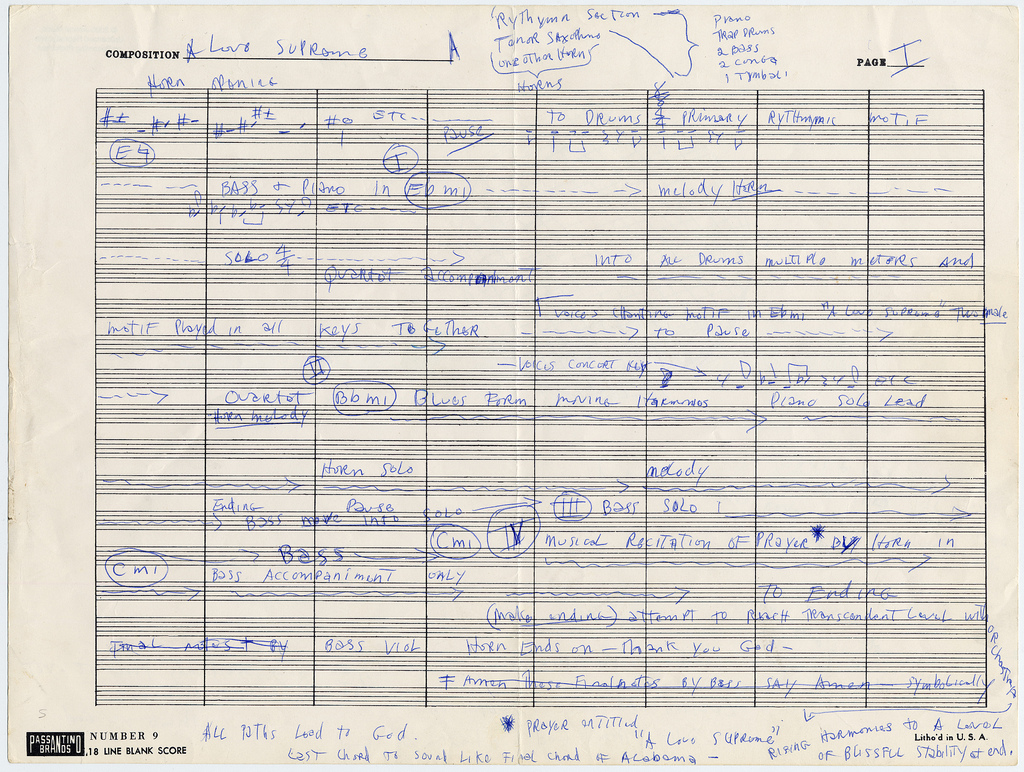 COMPOSITION A Love Supreme A
"Rythymn Section
Tenor Saxophone
(one other Horn)
Horns
Piano
Trap Drums
2 Bass
2 Conga
1 Tymbali
PAGE I
Horn opening
ETC
Pause
TO DRUMS PRIMARY RYTHMMIC MOTIF
E4
I
BASS & PIANO IN Ebmi melody Horn
ETC
SOLO 4/4 INTO ALL DRUMS MULTIPLE METERS AND
Quartet accompaniment
Voices Chanting motif in Ebmi "A Love Supreme" Two male
motif played in all Keys Together TO Pause
Voices Concert Key ETC
II
Quartet Bbmi Blues Form moving Harmonies Piano Solo Lead
Horn melody
Horn solo melody
Ending Pause
Bass move into solo III Bass solo 1
Cmi IV Musical Recitation of Prayer * By Horn in
Cmi Bass
Bass Accompaniment only
TO Ending
(make ending) attempt to Reach Transcendent Level with
orchestra
Final notes + By Bass Viol Horn Ends on — Thank You God —
Amen These Final notes By Bass Say Amen — Symbolically
Rising Harmonies to A Level
of Blissful Stability at end.
5
PASSANTINO
BRANDS
NUMBER 9
18 LINE BLANK SCORE
All Paths Lead to God.
* Prayer entitled
"A Love Supreme"
Last Chord To Sound Like Final Chord of Alabama —
Litho'd in U. S. A.